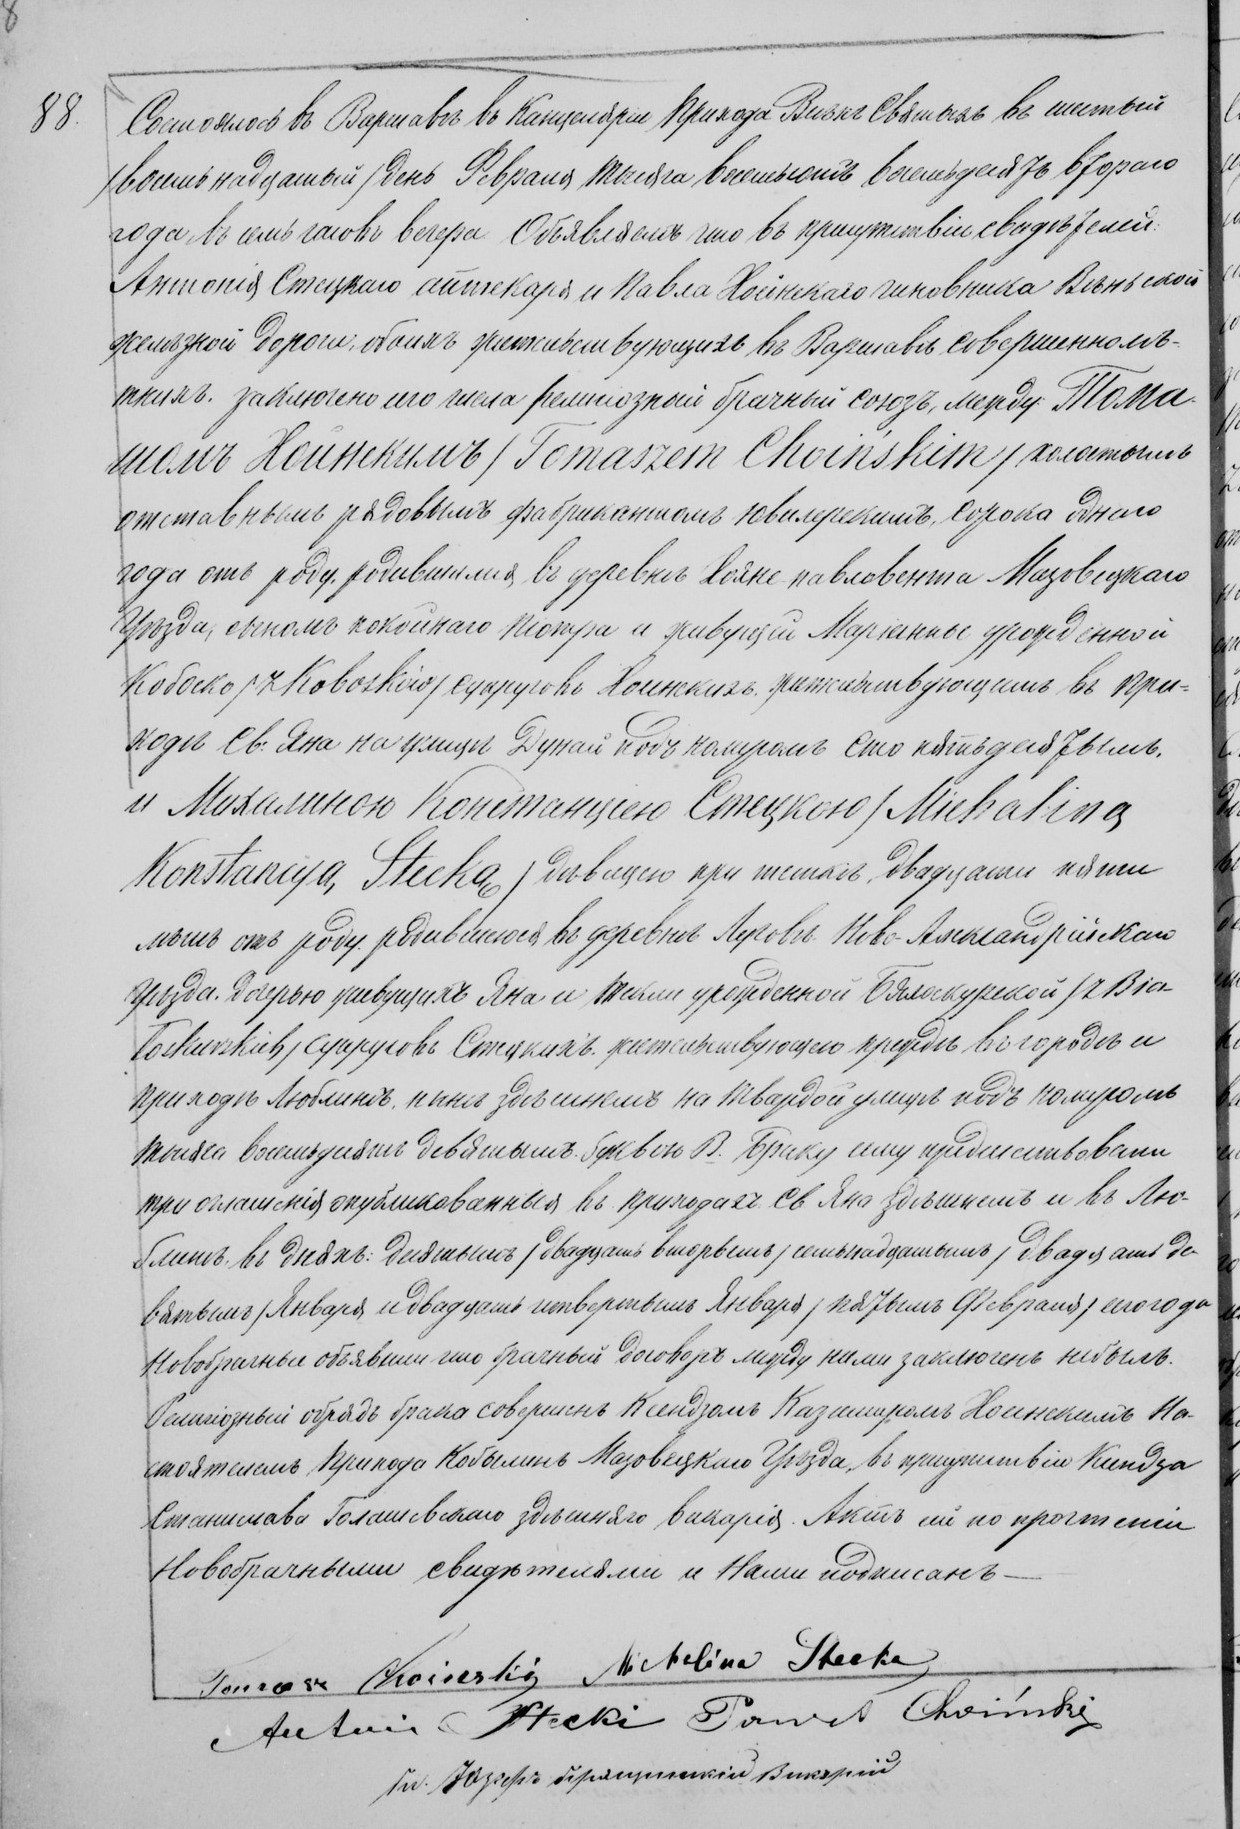 88.
Состоялось въ Варшавѣ въ Канцеляріи Прихода Всѣхъ Святыхъ въ шестый
/восемнадцатый/ день Февраля тысяча восемьсотъ восемьдесятъ втораго
года въ семь часовъ вечера. Объявляемъ что въ присутствіи свидѣтелей:
Антонія Стецкаго аптекаря и Павла Хоинскаго чиновника Вѣнской
желѣзной дороги, обоихъ жительствующихъ въ Варшавѣ совершеннолѣ-
тнихъ. заключено сего числа религіозный брачный союзъ, между Тома-
шомъ Хоинскимъ / Tomaszem Choińskim / холостымъ
отставнымъ рядовымъ фабрикантомъ ювилерскимъ, сорока одного
года отъ роду, родившимся въ деревнѣ Хояне-павловента Мазовецкаго
Уѣзда, сыномъ покойнаго Піотра и живущей Маріанны урожденной
Кобоско / z Kobosków / супруговъ Хоинскихъ. жительствующимъ въ При-
ходѣ Св. Яна на улицѣ Дунай подъ номеромъ сто пятьдесятымъ.
и Михалиною Констанціею Стецкою / Michaliną
Konstancyą Stecką / дѣвицею при теткѣ, двадцати пяти
лѣтъ отъ роду, родившеюся въ деревнѣ Ново-Александрійскаго
Уѣзда. дочерью живущихъ Яна и Текли урожденной Бялоскурской / z Bia-
łoskurskich / супруговъ Стецкихъ. жительствующею прежде въ городѣ и
приходѣ Люблинѣ. нынѣ здѣшнемъ на Твардой улицѣ подъ номеромъ
тысяча девятымъ. буквою В. Браку сему предшествовали
три оглашенія опубликованныя въ приходахъ Св Яна здѣшнемъ и въ Лю-
блинѣ. въ дняхъ: десятымъ / двадцать вторымъ / семьнадцатымъ / двадцать де-
вятымъ / Января и двадцать четвертымъ Января / пятымъ Февраля / сего года
Новобрачные объявили что брачный договоръ между ними заключенъ небылъ.
Религіозный обрядъ брака совершенъ Ксендзомъ Казимиромъ Хоинскимъ На-
стоятелемъ Прихода Кобылинъ Мазовецкаго Уѣзда, въ присутствіи Ксендза
Станислава Голашевскаго здѣшняго викарія. Актъ сей по прочтеніи
Новобрачными свидѣтелями и Нами подписанъ —
Tomasz Choiński Michalina Stecka
Antoni Stecki Paweł Choiński
Кс. Юзефъ Викарій